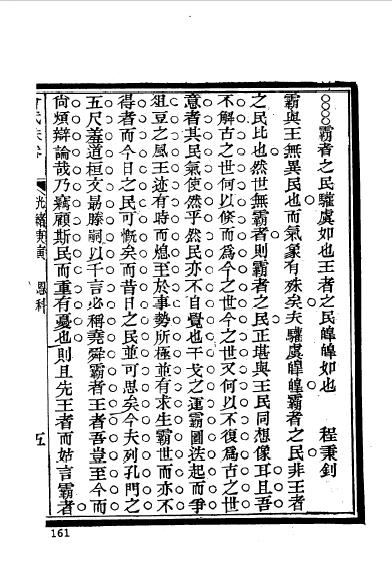 霸者之民驩虞如也王者之民皥皥如也　程秉釗
霸與王無異民也而氣象有殊矣夫驩虞皥皥霸者之民非王者
之民比也然世無霸者則霸者之民正堪與王民同想像耳且吾
不解古之世何以倏而爲今之世今之世又何以不復爲古之世
意者其民氣使然乎然民亦不自覺也干戈之運霸圖迭起而爭
俎豆之風王迹有時而熄至於事勢所極並有求生霸世而亦不
得者而今日之民可慨矣而昔日之民並可思矣今夫列孔門之
五尺羞道桓文勗滕嗣以千言必稱堯舜霸者王者吾豈至今而
尙煩辯論哉乃竊顧斯民而重有憂也則且先王者而姑言霸者
光緖庚寅　恩科　五
161